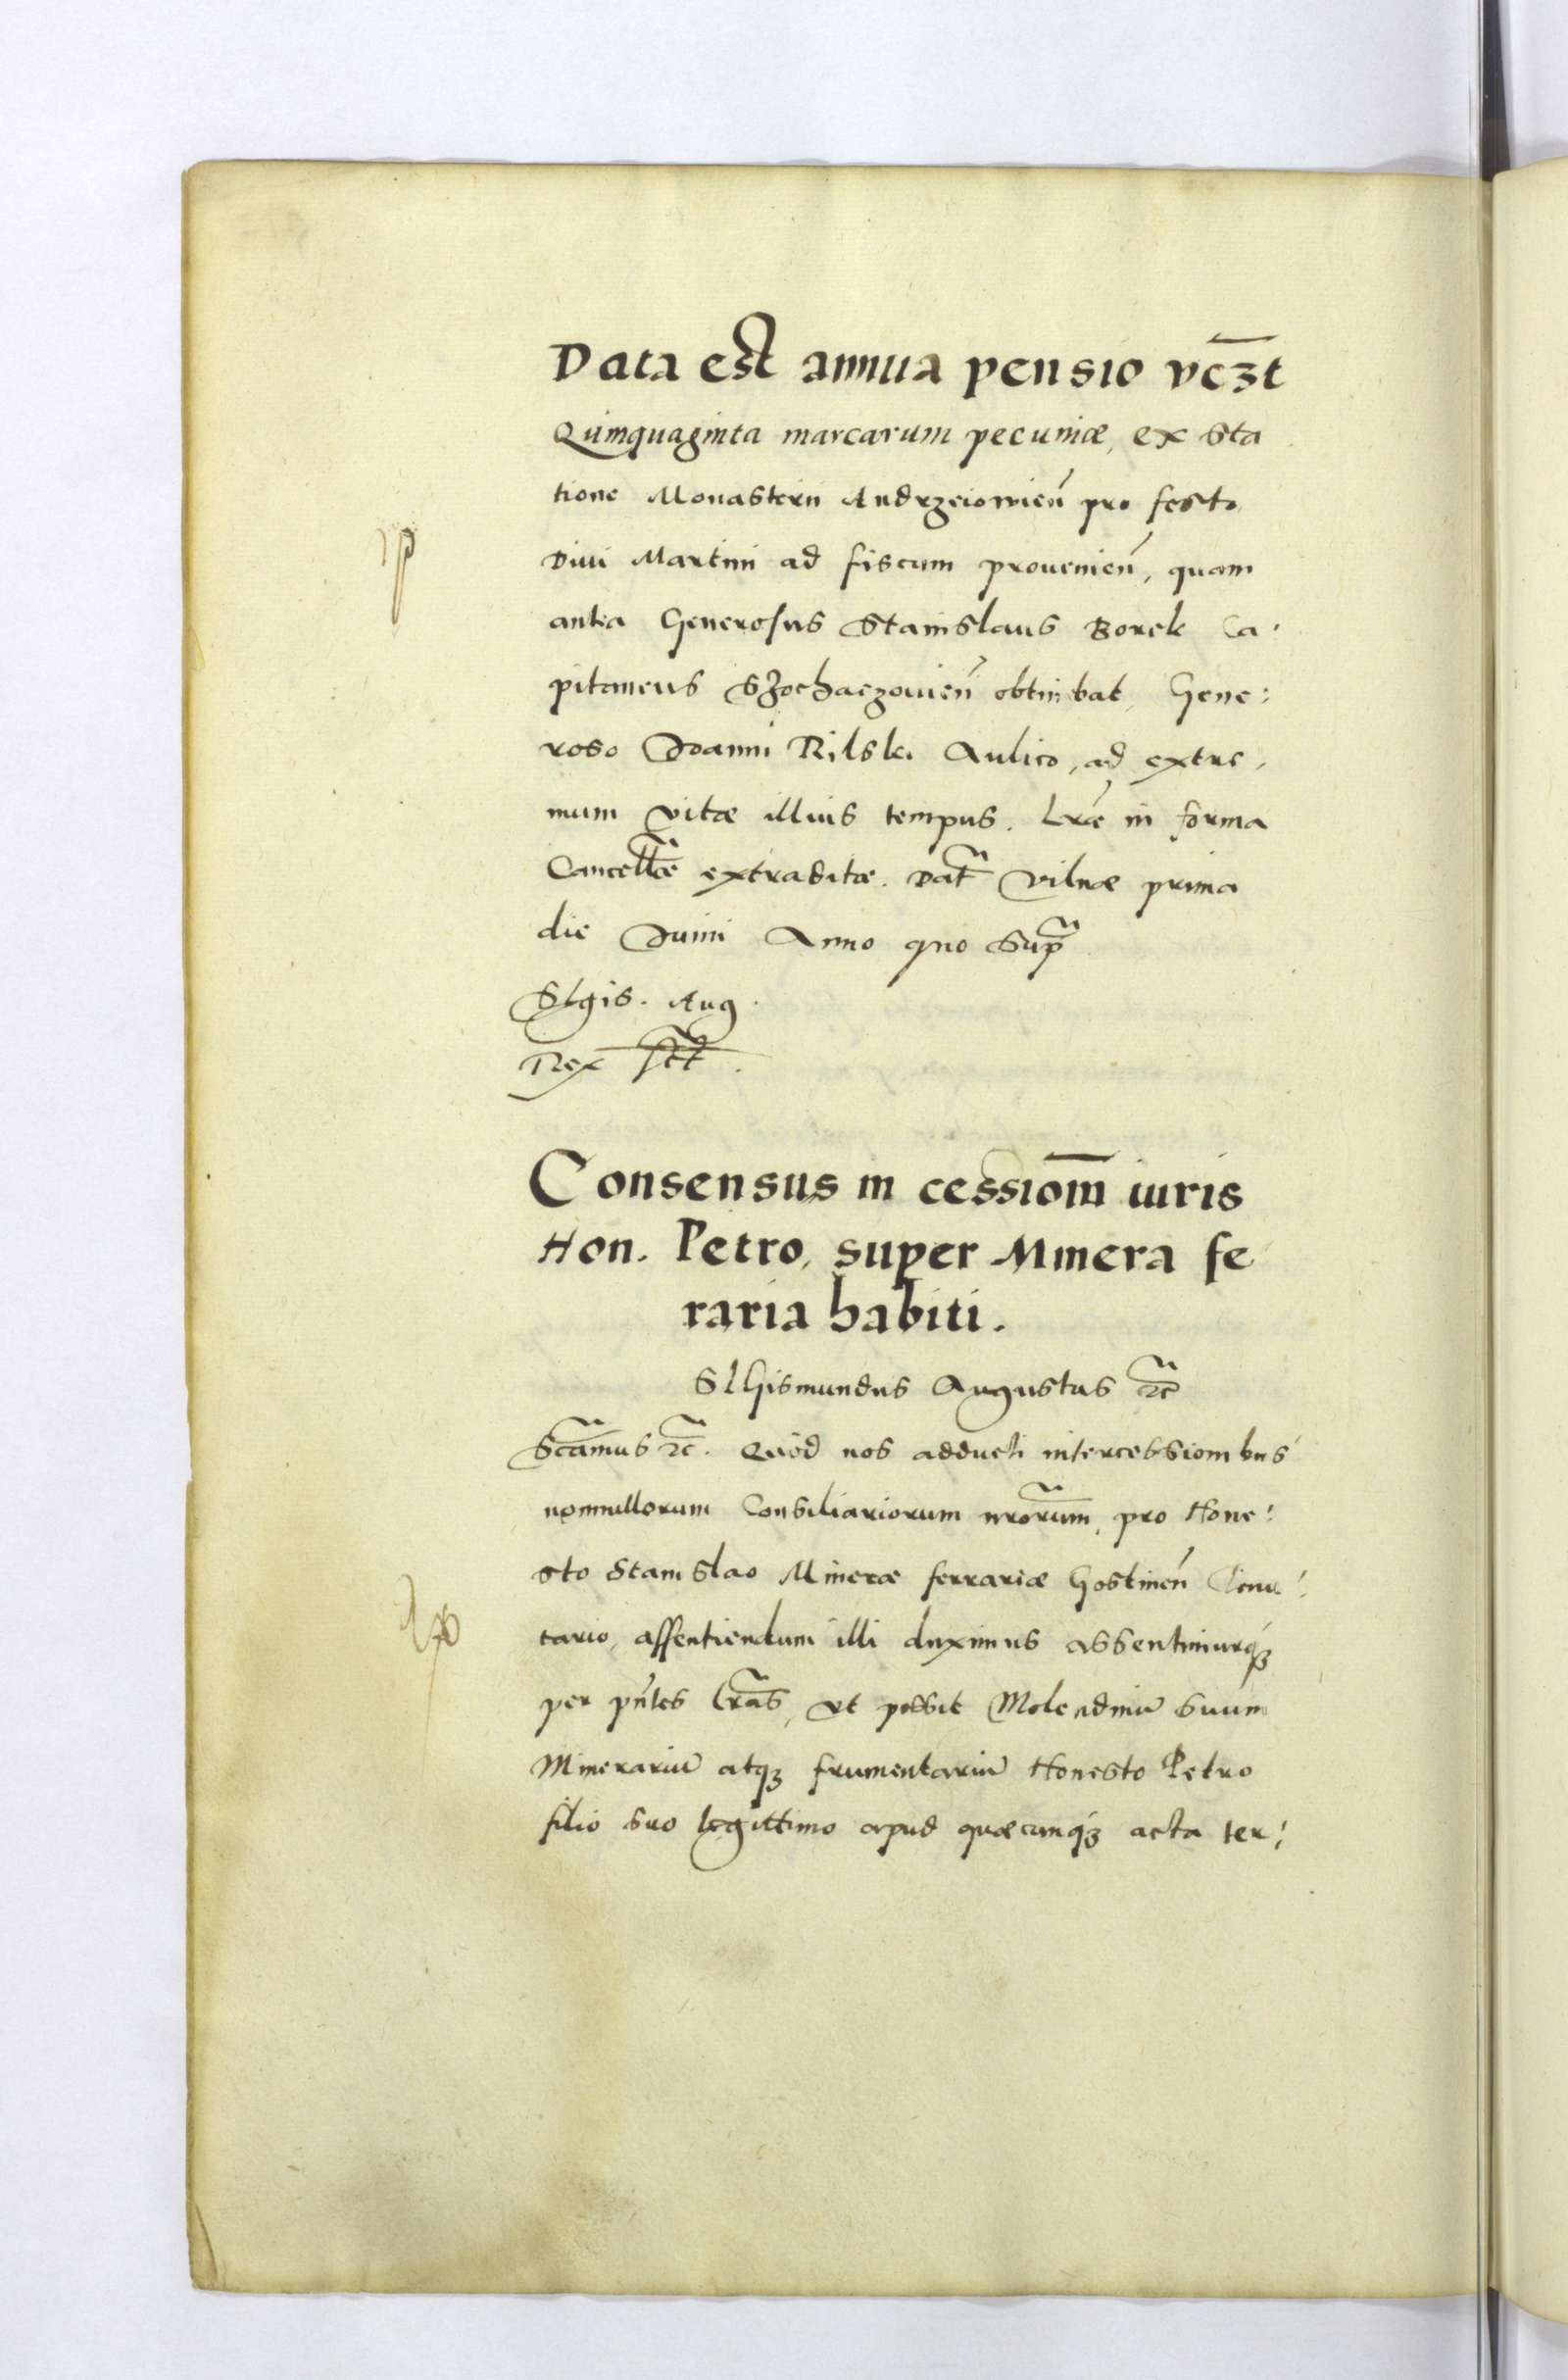 Data est annua pensio vcꝫt
Quinquaginta marcarum pecuniæ, ex Sta
tione Monasterii Andrzeiowieñ pro festo
Divi Martini ad fiscum provenieñ, quam
antea Generosus Stanislaus Borek Ca:
pitaneus Szochaczovieñ obtinebat, Gene:
roso Joanni Rilski Aulico, ad extre,
mum vitæ illius tempus. Lræ in forma
Cancellæ extraditæ. Dat Vilnæ prima
die Junii Anno quo Sup
Sigis. Aug.
Rex sst.
Consensus in cessiom iuris
Hon. Petro, super Minera fe
raria habiti.
Sigismundus Augustus ꝛc̃
Scamus ꝛc̃. Quod nos adducti intercessionibus
nonnullorum Consiliariorum nrorum, pro Hone:
sto Stanislao Mineræ ferrariæ Gostineñ Tenu:
tario, assentiendum illi duximus assentimurqꝫ
per pñtes Lras, vt possit Molendinũ suum
Minerariũ atqꝫ frumentariũ Honesto Petro
filio suo legittimo apud quæcunqꝫ acta ter: